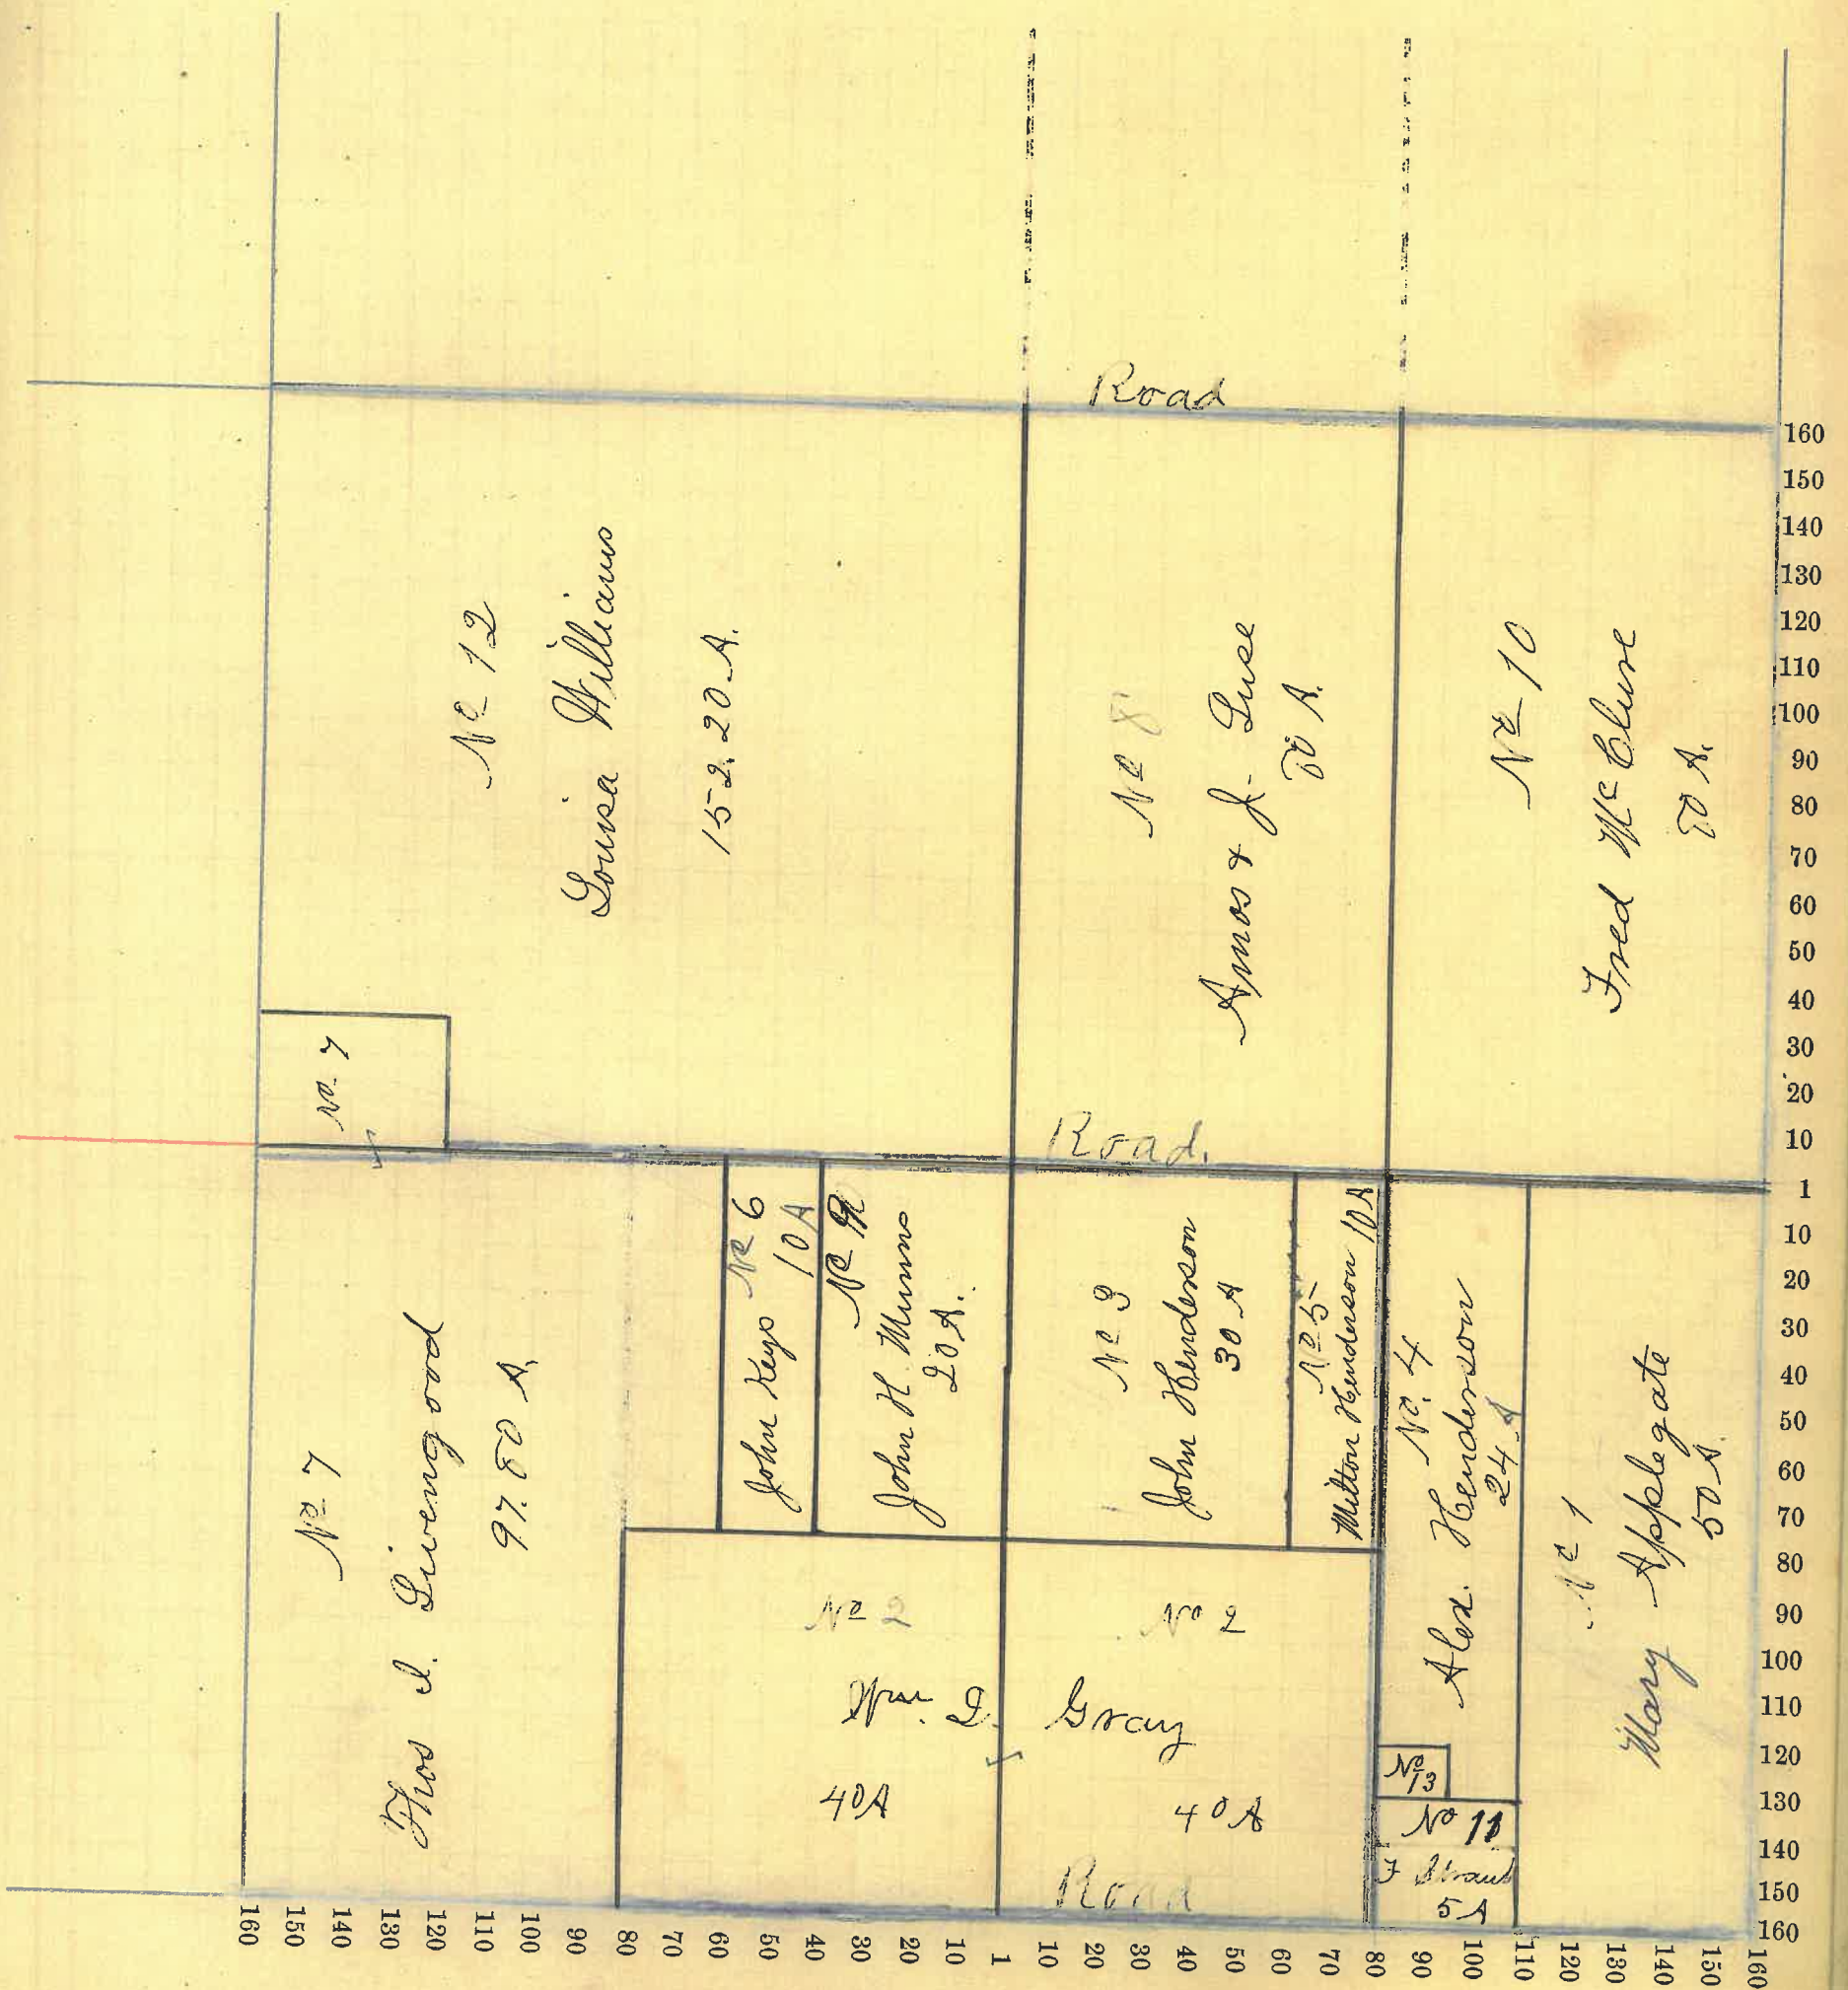 Road
No 12
Louisa Williams
152.20 A.
No 8
Amos & J. Luse
80 A.
No 10
Fred McClure
80 A.
No. 7
Road.
No 7
Thos. I. Livengood
97.80 A.
No 6
10 A
John Keys
No 9
John H. Munns
20 A.
No 3
John Henderson
30 A
No 5
Milton Henderson 10A
No. 4
Alex. Henderson
24 A
No 1
Mary Applegate
50 A.
No 2
No 2
Wm. D. Gray
40A
40 A
No 13
No 11
F Straub
5 A
Road
160
150
140
130
120
110
100
90
80
70
60
50
40
30
20
10
1
10
20
30
40
50
60
70
80
90
100
110
120
130
140
150
160
160 150 140 130 120 110 100 90 80 70 60 50 40 30 20 10 1 10 20 30 40 50 60 70 80 90 100 110 120 130 140 150 160